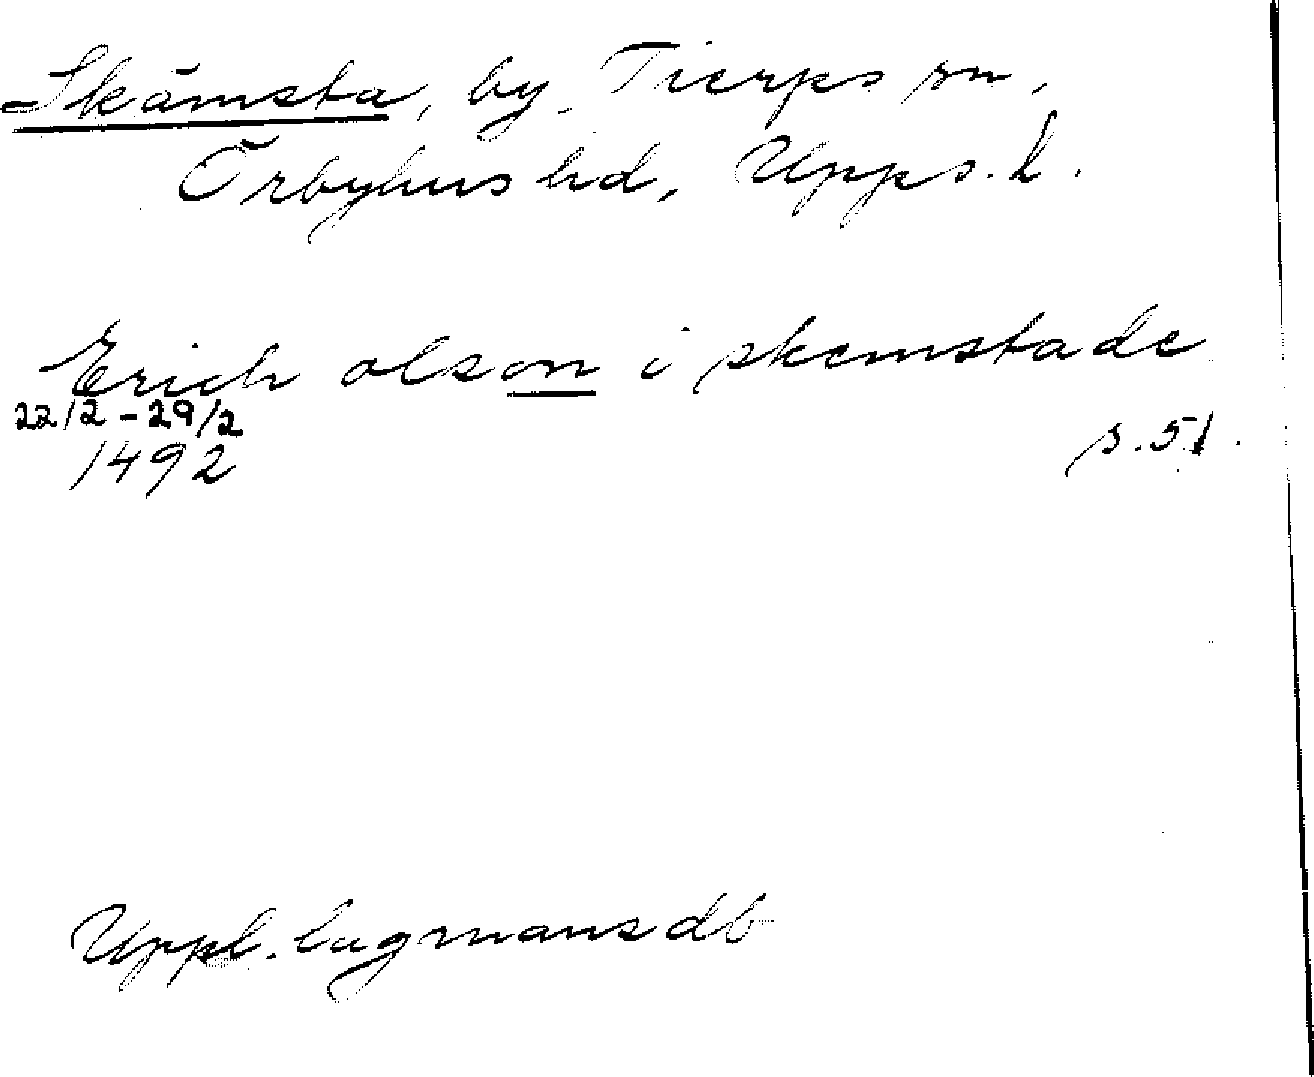 Skämsta, by, Tierps sn,
Örbyhus hd, Upps. l.
Erich olsson i skemstade
22/2 - 29/2
1492
s. 51.
Uppl. lagmansdb